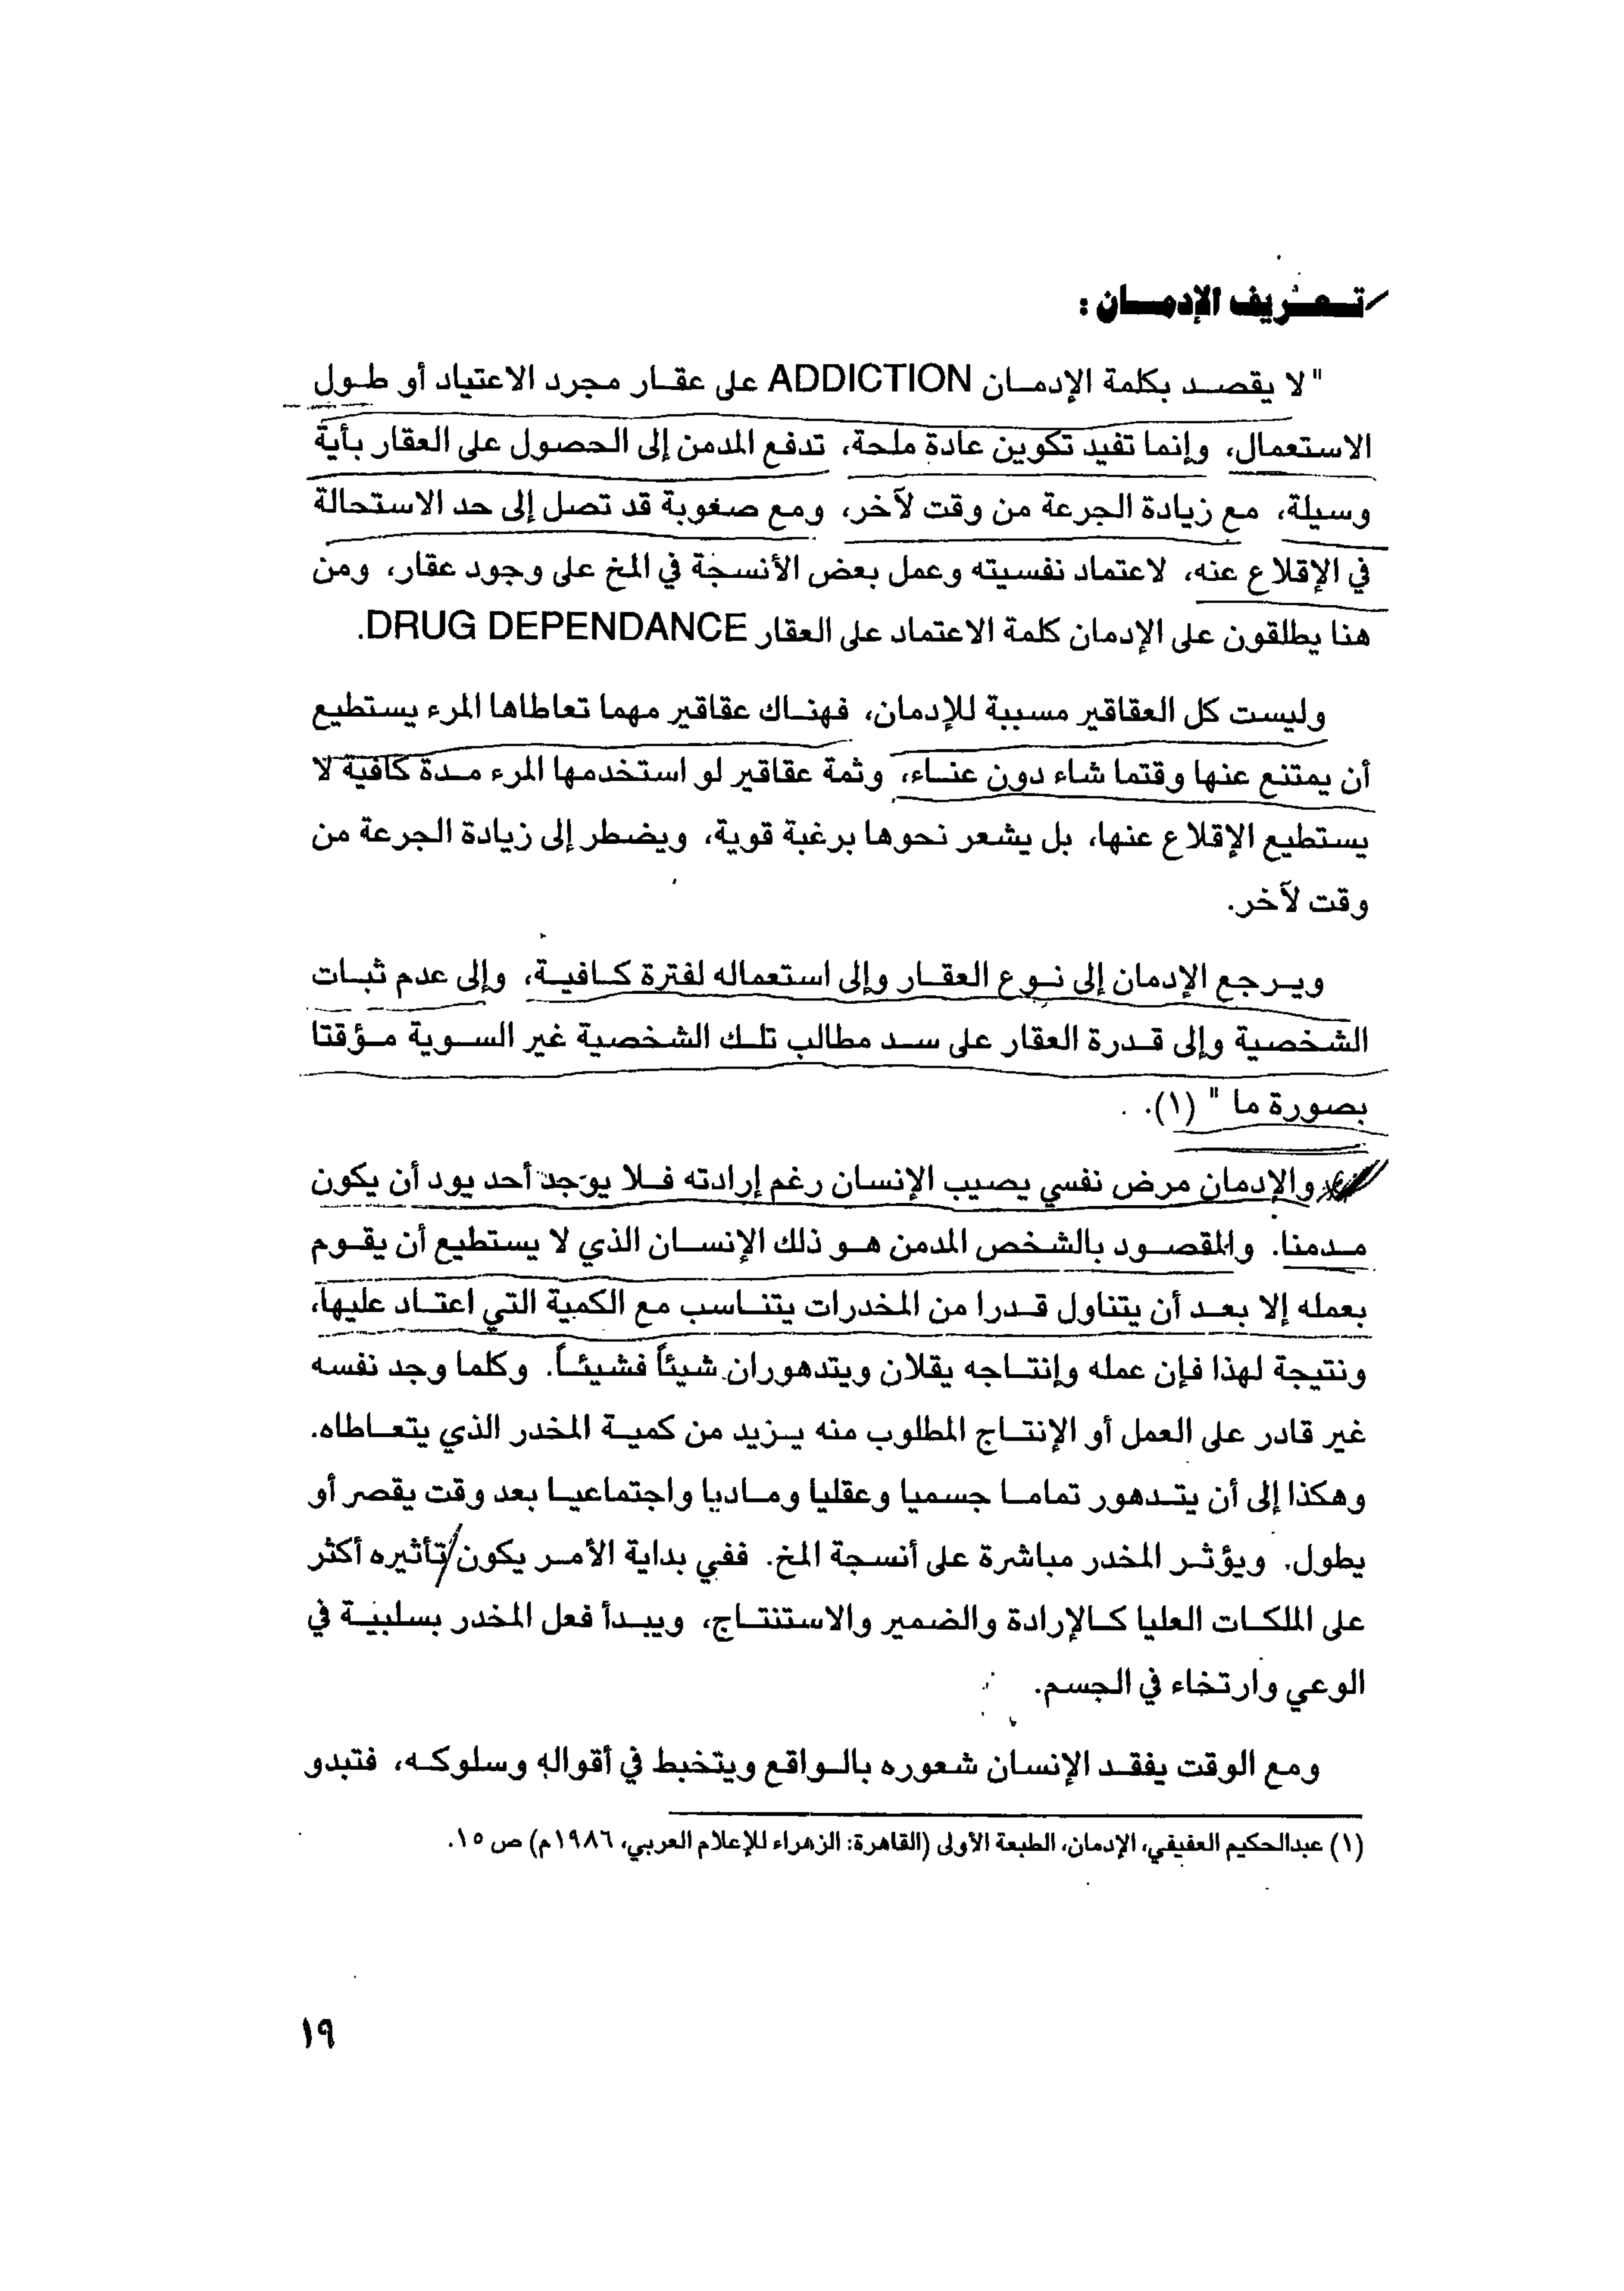 تعريف الإدمان :
" لا يقصد بكلمة الإدمان ADDICTION على عقار مجرد الاعتياد أو طول
الاستعمال، وإنما تفيد تكوين عادة ملحة، تدفع المدمن إلى الحصول على العقار بأية
وسيلة، مع زيادة الجرعة من وقت لآخر، ومع صعوبة قد تصل إلى حد الاستحالة
في الإقلاع عنه، لاعتماد نفسيته وعمل بعض الأنسجة في المخ على وجود عقار، ومن
هنا يطلقون على الإدمان كلمة الاعتماد على العقار DRUG DEPENDANCE.
وليست كل العقاقير مسببة للإدمان، فهناك عقاقير مهما تعاطاها المرء يستطيع
أن يمتنع عنها وقتما شاء دون عناء، وثمة عقاقير لو استخدمها المرء مدة كافية لا
يستطيع الإقلاع عنها، بل يشعر نحوها برغبة قوية، ويضطر إلى زيادة الجرعة من
وقت لآخر.
ويرجع الإدمان إلى نوع العقار وإلى استعماله لفترة كافية، وإلى عدم ثبات
الشخصية وإلى قدرة العقار على سد مطالب تلك الشخصية غير السوية مؤقتا
بصورة ما " (١).
والإدمان مرض نفسي يصيب الإنسان رغم إرادته فلا يوجد أحد يود أن يكون
مدمنا. والمقصود بالشخص المدمن هو ذلك الإنسان الذي لا يستطيع أن يقوم
بعمله إلا بعد أن يتناول قدرا من المخدرات يتناسب مع الكمية التي اعتاد عليها،
ونتيجة لهذا فإن عمله وإنتاجه يقلان ويتدهوران شيئاً فشيئاً. وكلما وجد نفسه
غير قادر على العمل أو الإنتاج المطلوب منه يزيد من كمية المخدر الذي يتعاطاه.
وهكذا إلى أن يتدهور تماما جسميا وعقليا وماديا واجتماعيا بعد وقت يقصر أو
يطول. ويؤثر المخدر مباشرة على أنسجة المخ. ففي بداية الأمر يكون تأثيره أكثر
على الملكات العليا كالإرادة والضمير والاستنتاج، ويبدأ فعل المخدر بسلبية في
الوعي وارتخاء في الجسم.
ومع الوقت يفقد الإنسان شعوره بالواقع ويتخبط في أقواله وسلوكه، فتبدو
(١) عبدالحكيم العفيفي، الإدمان، الطبعة الأولى (القاهرة: الزهراء للإعلام العربي، ١٩٨٦م) ص ١٥.
١٩